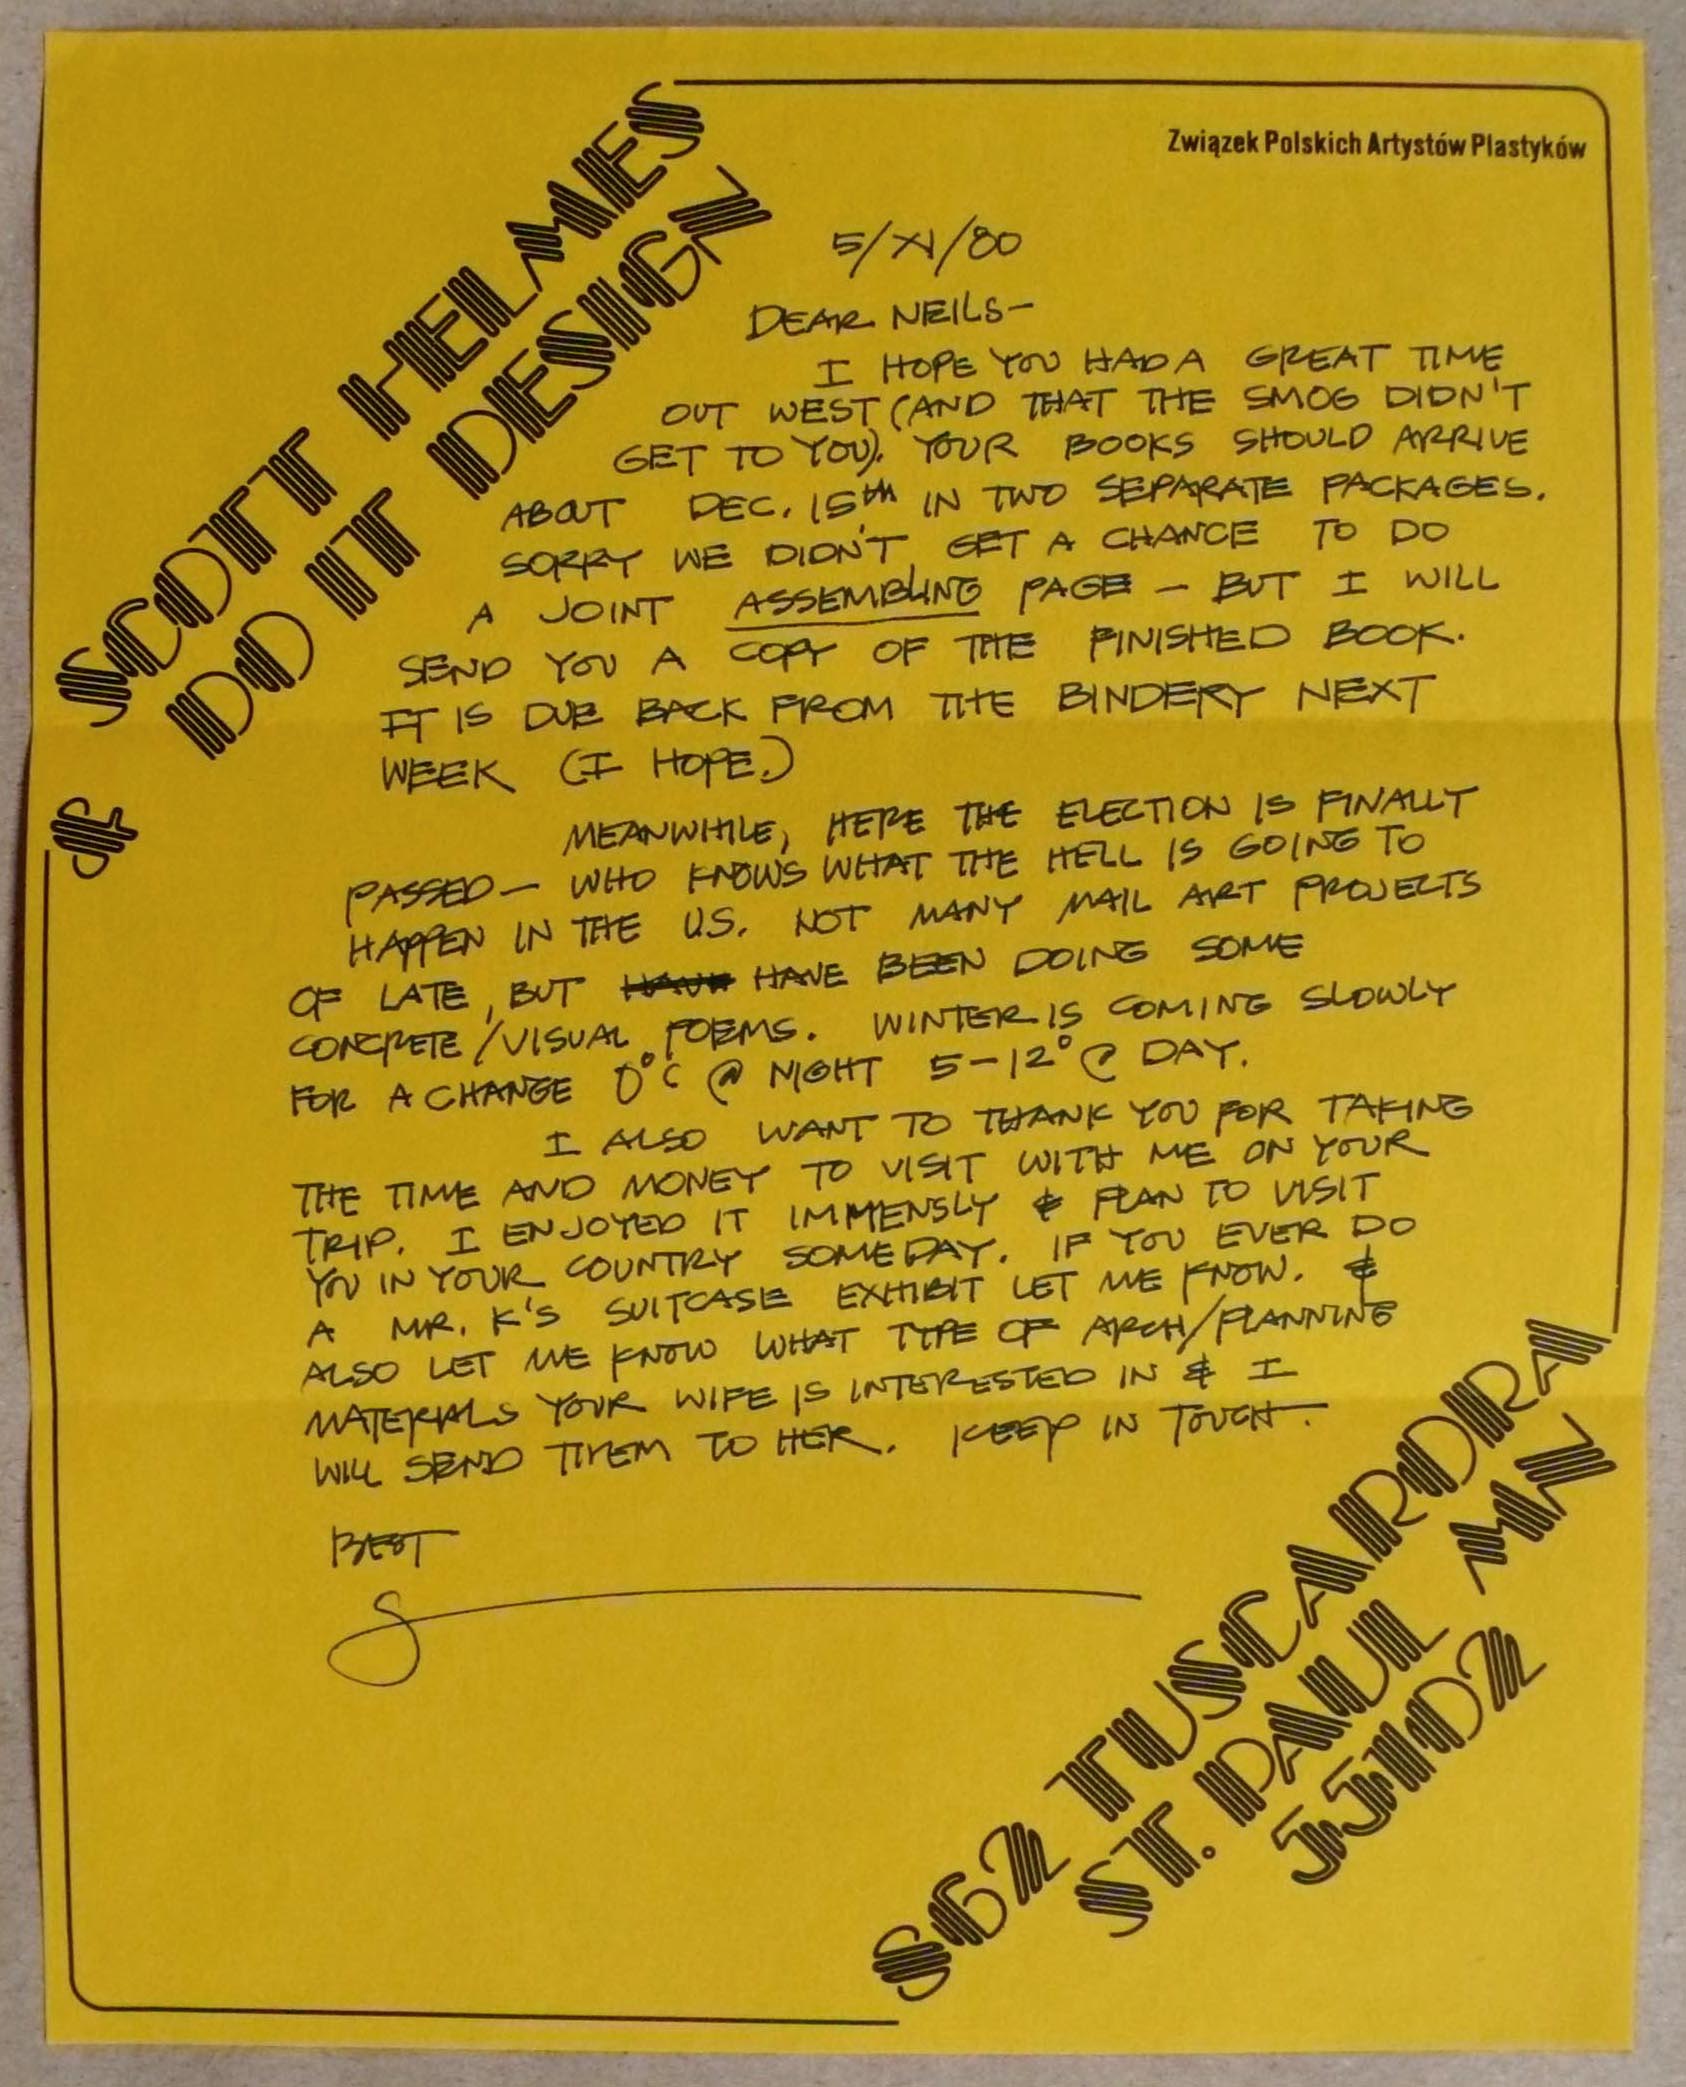 SCOTT HELMES
DO IT DESIGN
&
Związek Polskich Artystów Plastyków
5/XI/80
DEAR NEILS—
I HOPE YOU HAD A GREAT TIME
OUT WEST (AND THAT THE SMOG DIDN'T
GET TO YOU). YOUR BOOKS SHOULD ARRIVE
ABOUT DEC. 15th IN TWO SEPARATE PACKAGES.
SORRY WE DIDN'T GET A CHANCE TO DO
A JOINT ASSEMBLING PAGE – BUT I WILL
SEND YOU A COPY OF THE FINISHED BOOK.
IT IS DUE BACK FROM THE BINDERY NEXT
WEEK (I HOPE.)
MEANWHILE, HERE THE ELECTION IS FINALLY
PASSED – WHO KNOWS WHAT THE HELL IS GOING TO
HAPPEN IN THE U.S. NOT MANY MAIL ART PROJECTS
OF LATE, BUT HAVE BEEN DOING SOME
CONCRETE/VISUAL POEMS. WINTER IS COMING SLOWLY
FOR A CHANGE 0°C @ NIGHT 5–12° @ DAY.
I ALSO WANT TO THANK YOU FOR TAKING
THE TIME AND MONEY TO VISIT WITH ME ON YOUR
TRIP. I ENJOYED IT IMMENSLY & PLAN TO VISIT
YOU IN YOUR COUNTRY SOMEDAY. IF YOU EVER DO
A MR. K'S SUITCASE EXHIBIT LET ME KNOW. &
ALSO LET ME KNOW WHAT TYPE OF ARCH/PLANNING
MATERIALS YOUR WIFE IS INTERESTED IN & I
WILL SEND THEM TO HER. KEEP IN TOUCH.
BEST
S
862 TUSCARORA
ST. PAUL MN
55102